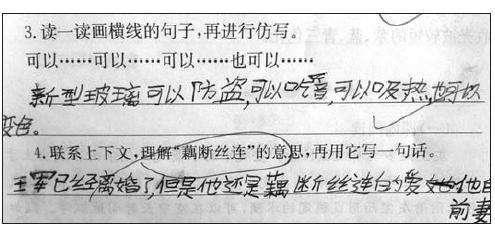 3.读一读画横线的句子,再进行仿写。
可以……可以……可以……也可以……
新型玻璃可以防盗,可以吃音,可以吸热,也可以
变色。
4.联系上下文,理解“藕断丝连”的意思,再用它写一句话。
王军已经离婚了,但是他还是藕断丝连的爱 他的
前妻